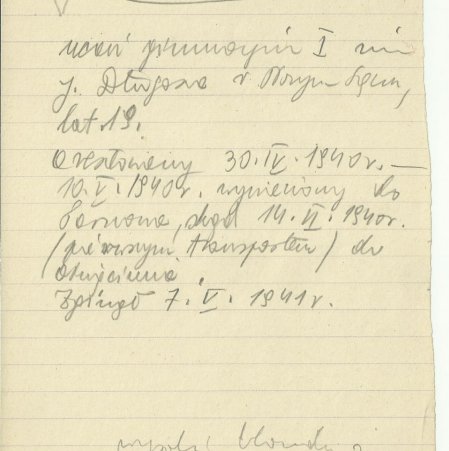 uczeń gimnazjum I im
J. Długosza w Nowym Sączu,
lat 19.
Aresztowany 30.IV.1940r. —
10.V.1940r. wywieziony do
Tarnowa, skąd 14.VI.1940r.
(pierwszym transportem) do
Oświęcimia.
Zginął 7.V.1941r.
wysoki blondyn